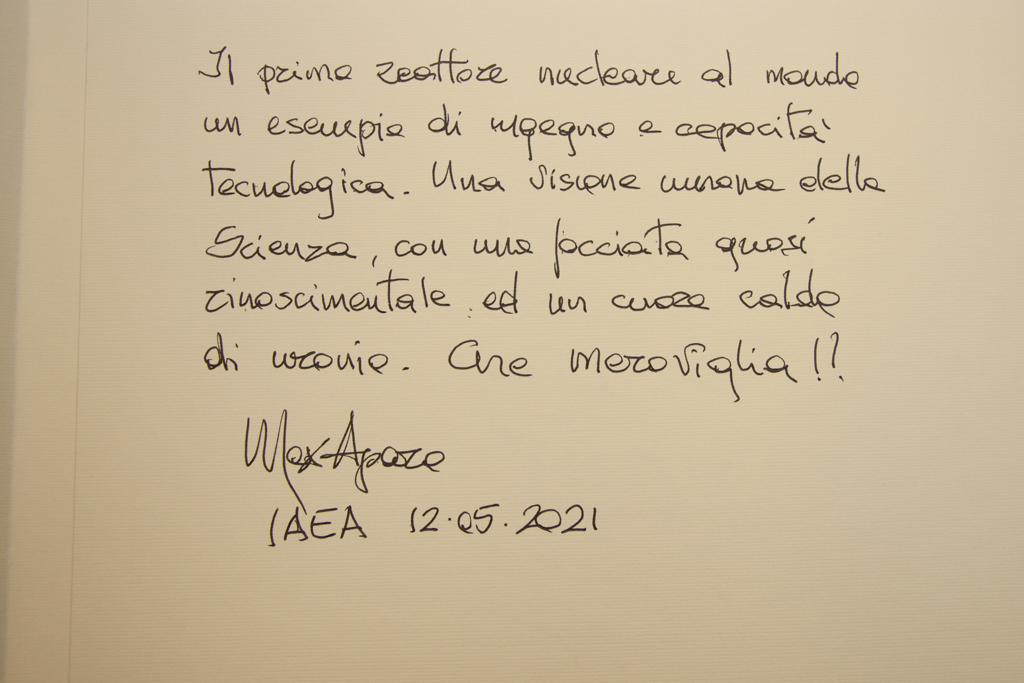 Il primo reattore nucleare al mondo
un esempio di ingegno e capacità
tecnologica. Una visione umana della
Scienza, con una facciata quasi
rinascimentale ed un cuore caldo
di uranio. Che meraviglia!!
Max Aparo
IAEA 12.05.2021